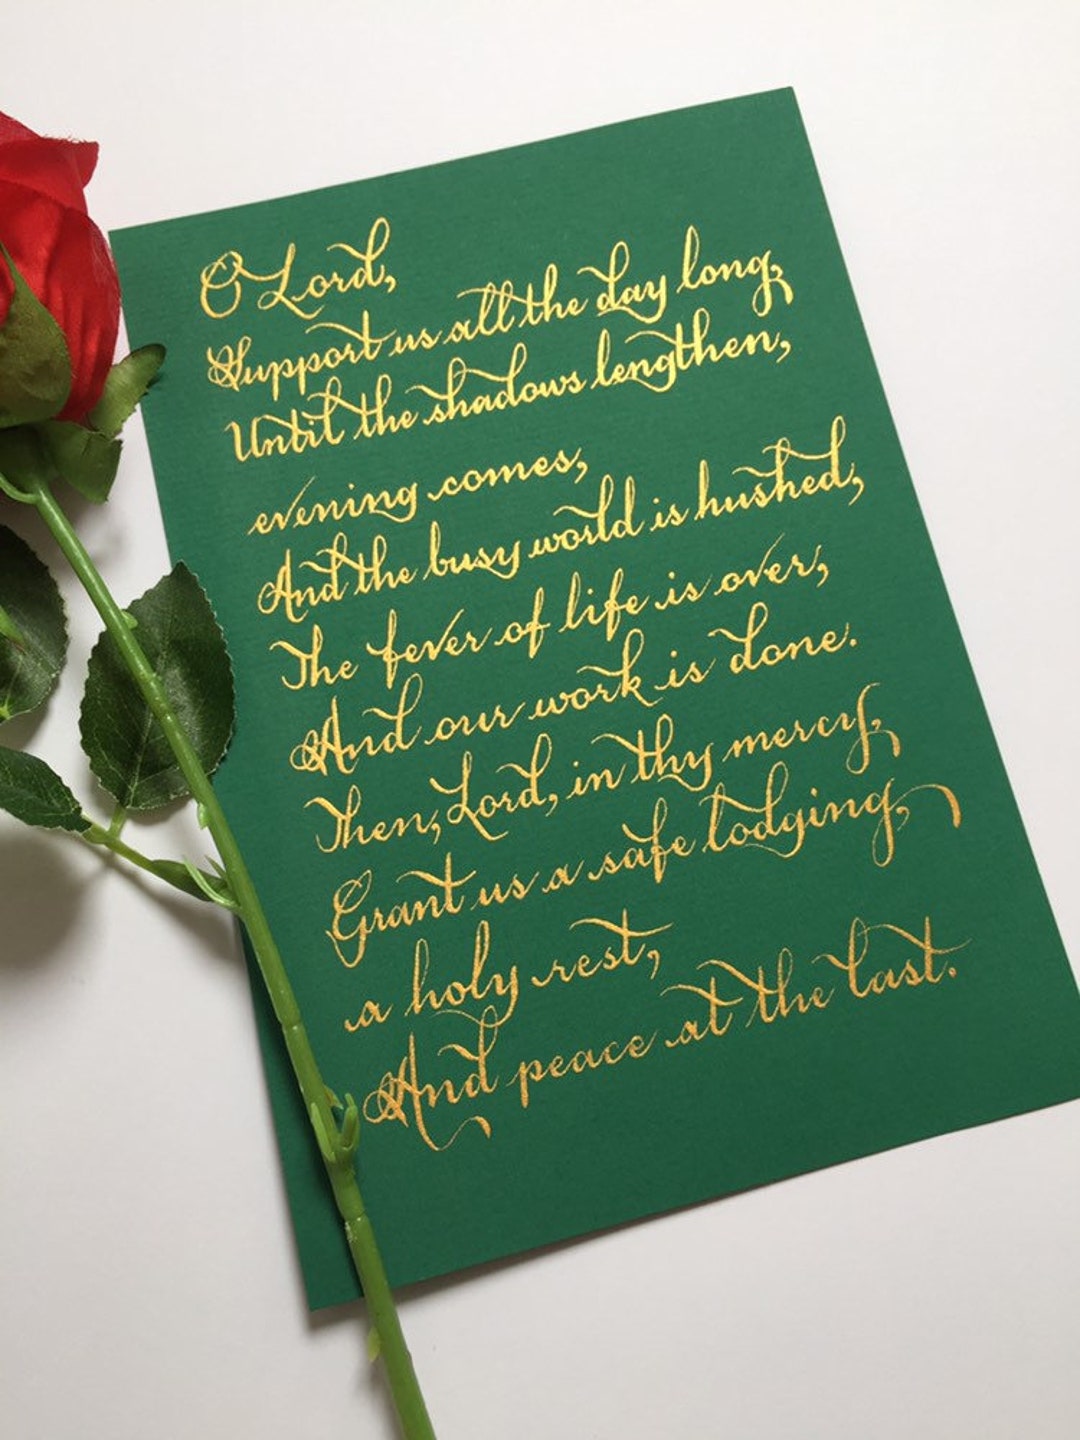 O Lord,
Support us all the day long,
Until the shadows lengthen,
evening comes,
And the busy world is hushed,
The fever of life is over,
And our work is done.
Then, Lord, in thy mercy,
Grant us a safe lodging,
a holy rest,
And peace at the last.